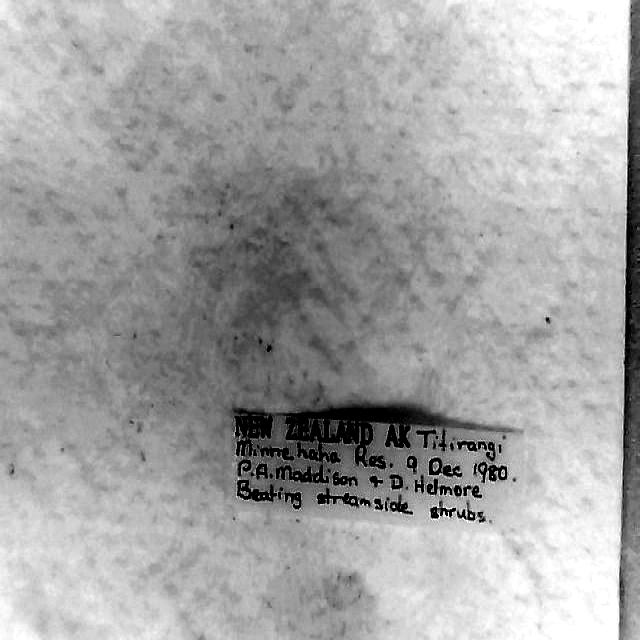 NEW ZEALAND AK Titirangi
Minnehaha Res. 9 Dec 1980.
P.A. Maddison + D. Helmore
Beating streamside shrubs.